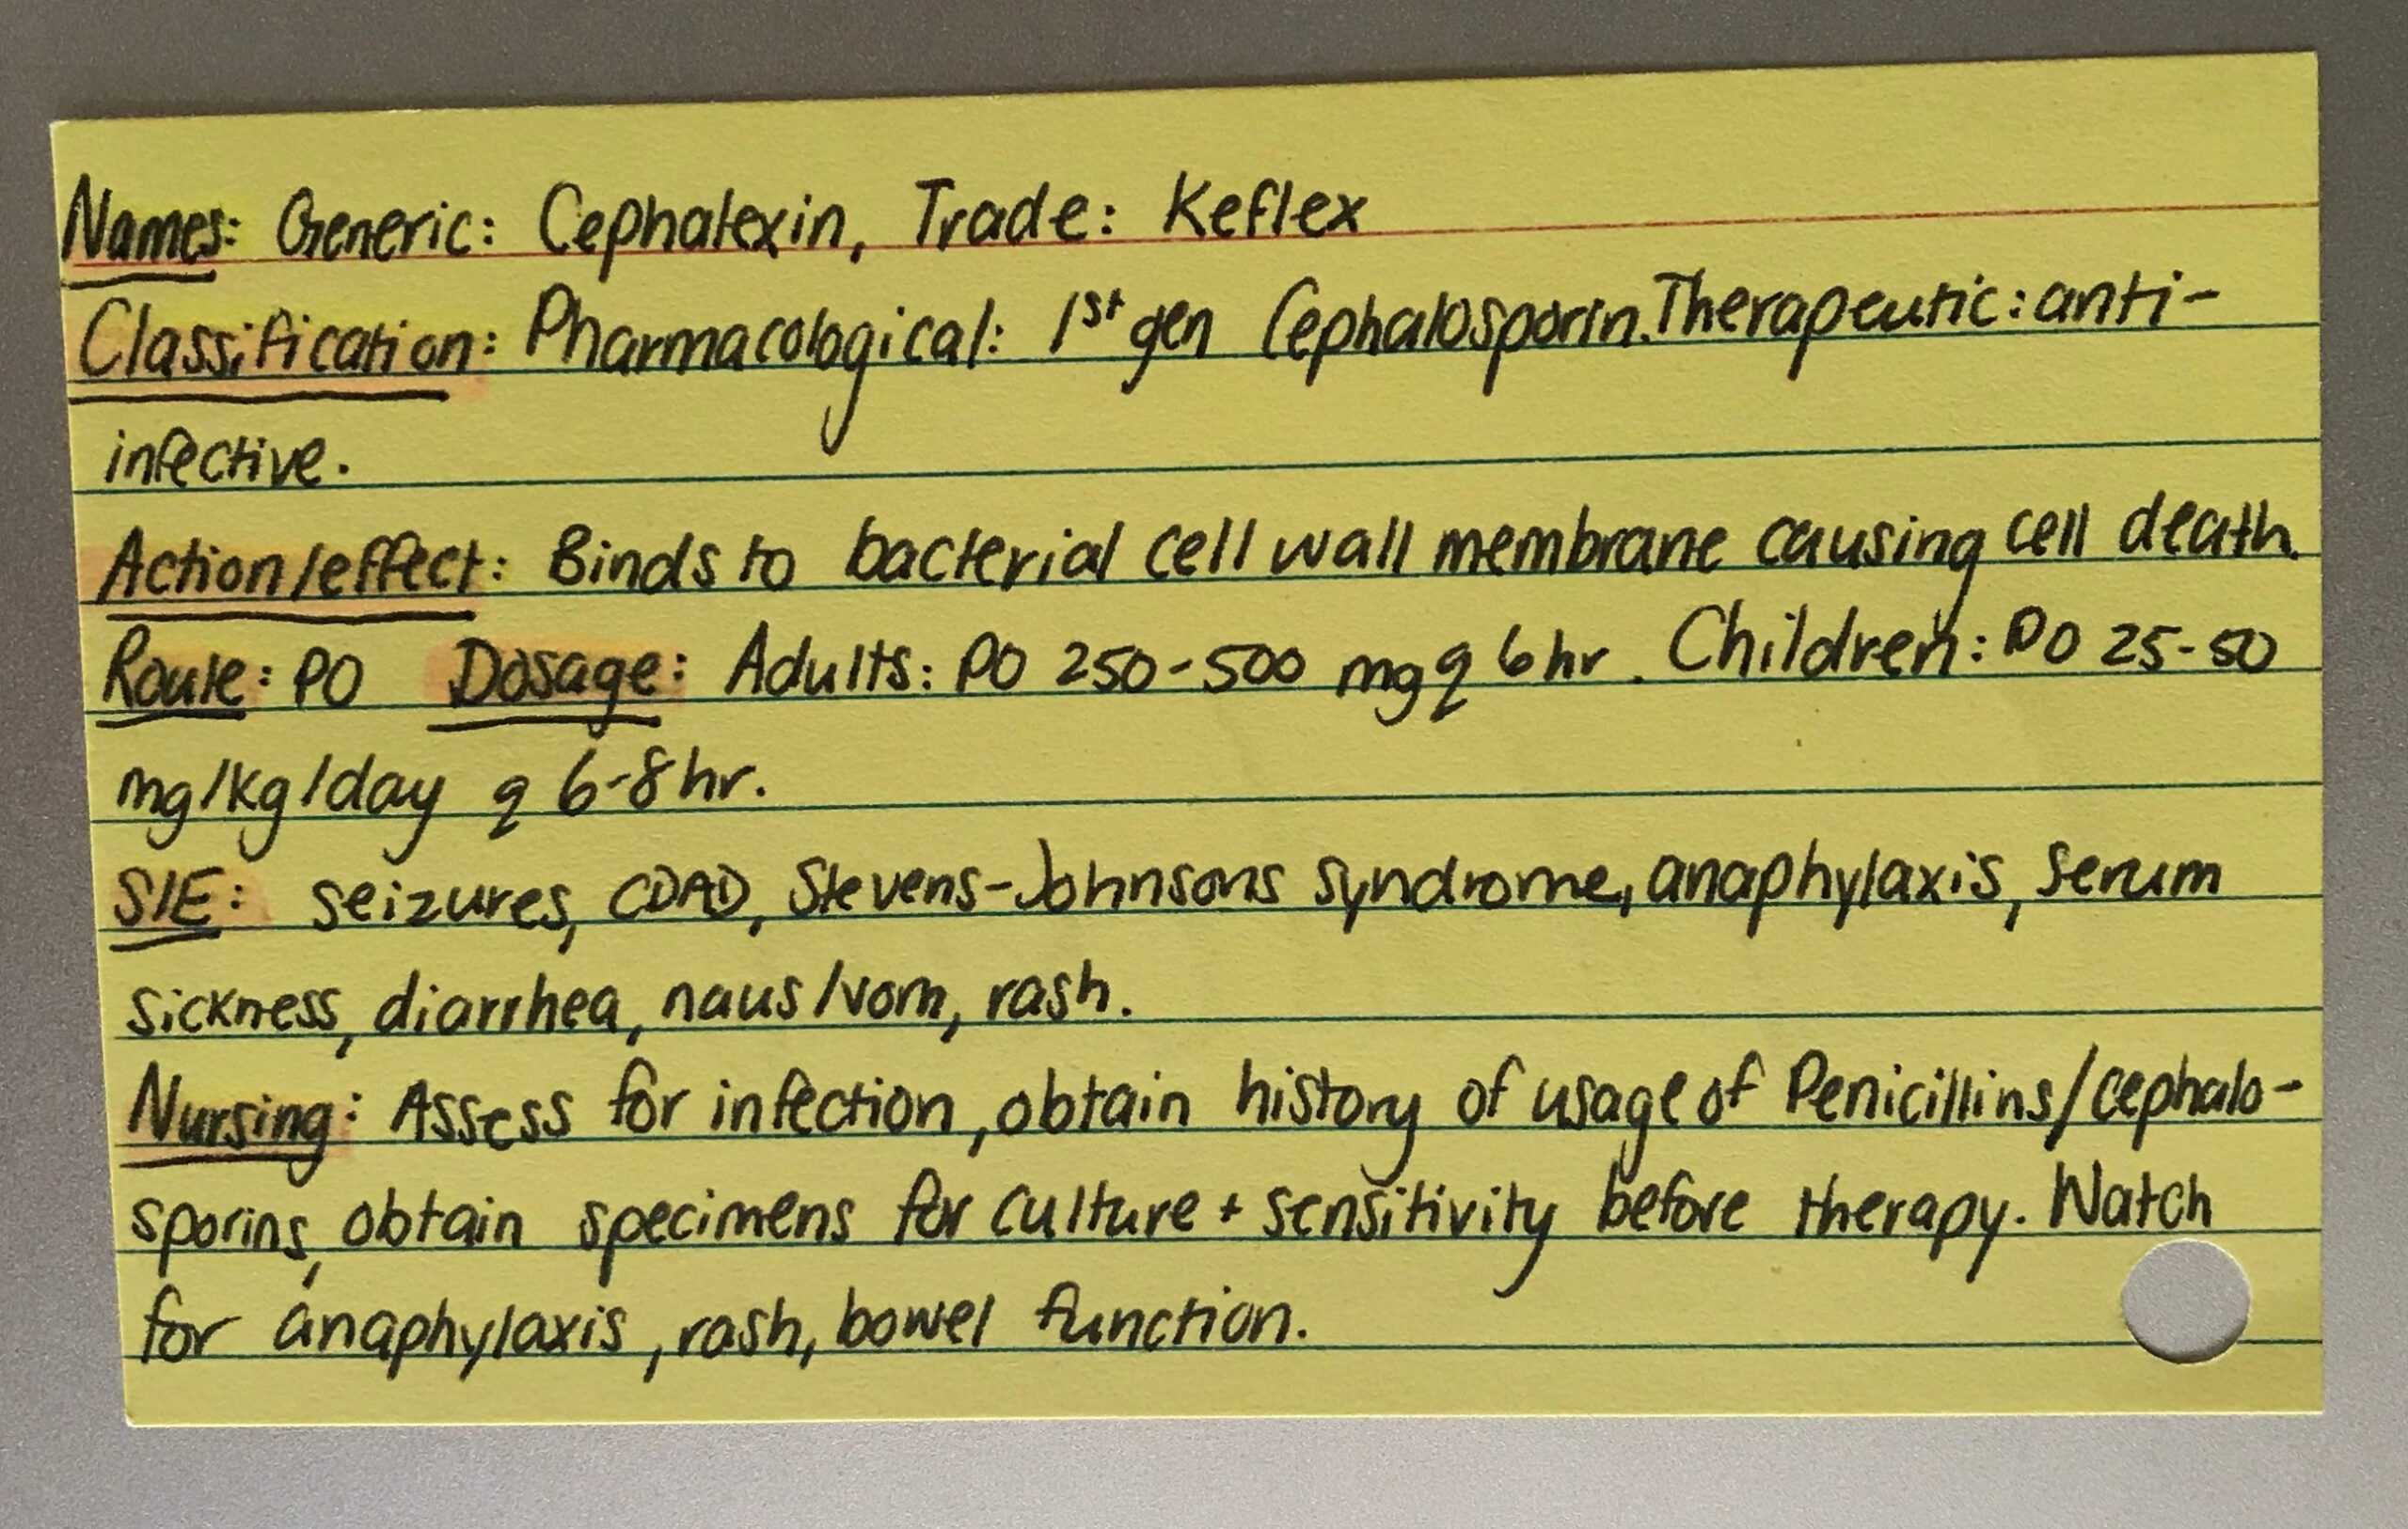 Names: Generic: Cephalexin, Trade: Keflex
Classification: Pharmacological: 1st gen Cephalosporin. Therapeutic: anti-
infective.
Action/effect: Binds to bacterial cell wall membrane causing cell death.
Route: PO Dosage: Adults: PO 250-500 mg q 6hr. Children: PO 25-50
mg/kg/day q 6-8hr.
S/E: seizures, CDAD, Stevens-Johnsons syndrome, anaphylaxis, serum
sickness, diarrhea, naus/vom, rash.
Nursing: Assess for infection, obtain history of usage of Penicillins/cephalo-
sporins, obtain specimens for culture + sensitivity before therapy. Watch
for anaphylaxis, rash, bowel function.